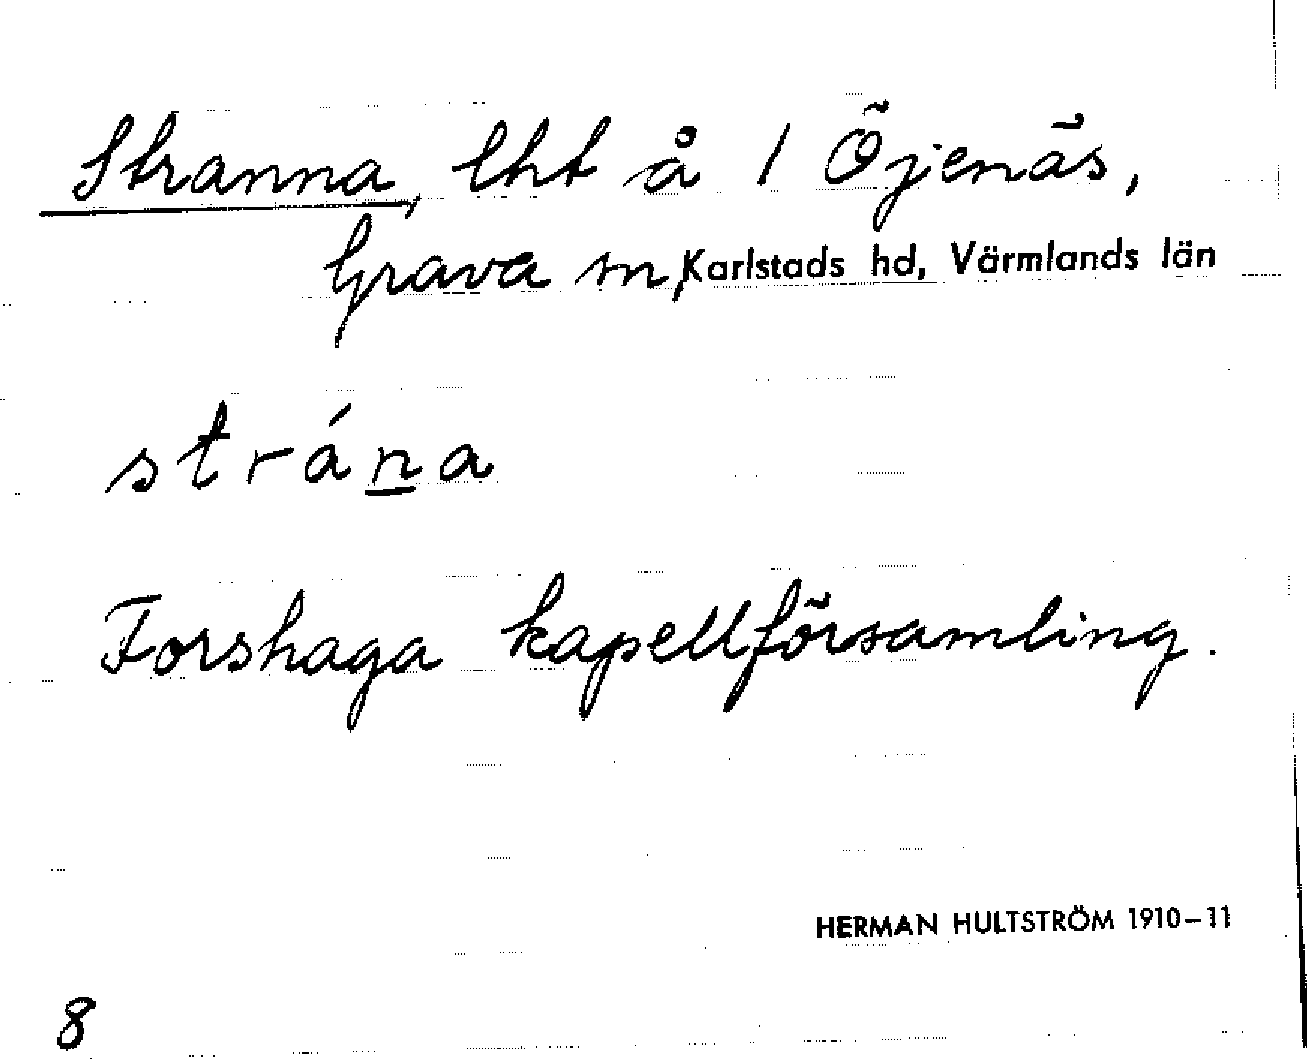 Stranna, lht å 1 Öjenäs,
Grava sn, Karlstads hd, Värmlands län
strána
Forshaga kapellförsamling.
HERMAN HULTSTRÖM 1910–11
8